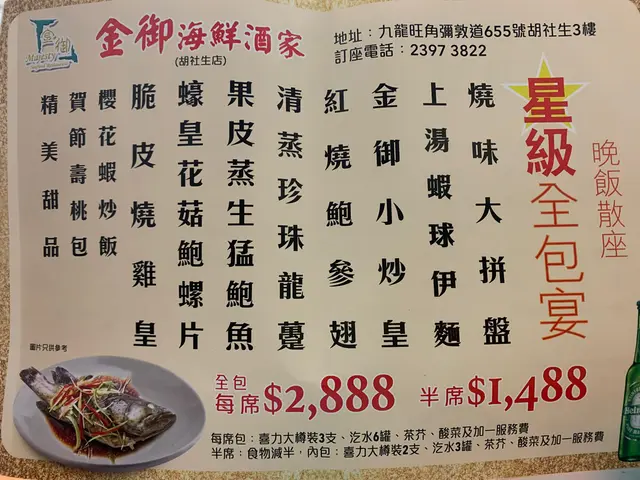 金御
Majesty
金御海鮮酒家
(胡社生店)
地址：九龍旺角彌敦道655號胡社生3樓
訂座電話：2397 3822
晚飯散座
星級全包宴
燒味大拼盤
上湯蝦球伊麵
金御小炒皇
紅燒鮑參翅
清蒸珍珠龍躉
果皮蒸生猛鮑魚
蠔皇花菇鮑螺片
脆皮燒雞皇
櫻花蝦炒飯
賀節壽桃包
精美甜品
圖片只供參考
全包每席$2,888 半席$1,488
每席包：喜力大樽裝3支、汽水6罐、茶芥、酸菜及加一服務費
半席：食物減半，內包：喜力大樽裝2支、汽水3罐、茶芥、酸菜及加一服務費